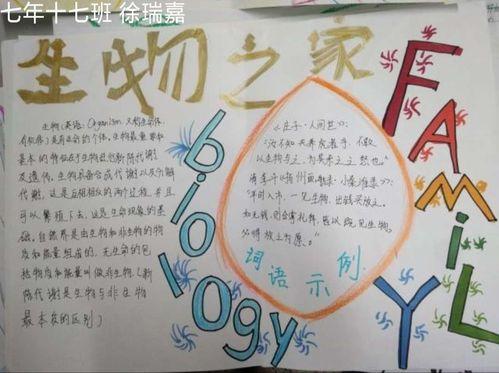 七年十七班 徐瑞嘉
生物之家
FAMiLY
biology
生物(英语:Organism,又称生命体,
有机体)是有生命的个体。生物最重要和
基本的特征在于生物进行新陈代谢
及遗传。生物具备合成代谢以及分解
代谢,这是互相相反的两个过程,并且
可以繁殖下去,这是生命现象的基
础。自然界是由生物和非生物的物
质和能量组成的。无生命的包
括物质和能量叫做非生物(新
陈代谢是生物与非生物
最本质的区别)
《庄子·人间世》:
“汝不知夫养虎者乎,不敢
以生物与之,为其杀之之怒也。”
清李斗《扬州画舫录·小秦淮录》:
“年时入市,一见生物,出钱买放之。
词语示例